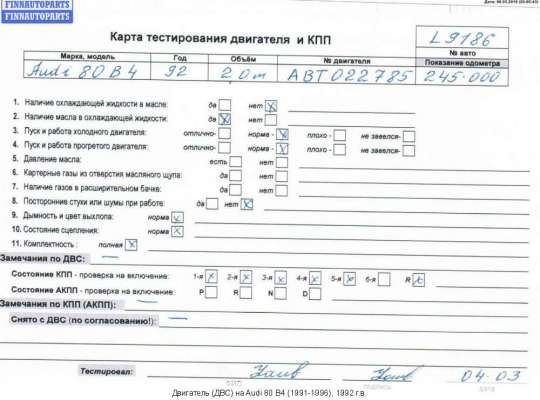 FINNAUTOPARTS
FINNAUTOPARTS
Карта тестирования двигателя и КПП
L9186
№ авто
Марка, модель Год Объём № двигателя Показание одометра
Audi 80 B4 92 2,0 м ABT022785 245.000
1. Наличие охлаждающей жидкости в масле: да нет x
2. Наличие масла в охлаждающей жидкости: да x нет
3. Пуск и работа холодного двигателя: отлично- норма - x плохо - не завелся-
4. Пуск и работа прогретого двигателя: отлично- норма - x плохо - не завелся-
5. Давление масла: есть нет
6. Картерные газы из отверстия масляного щупа: да нет
7. Наличие газов в расширительном бачке: да нет
8. Посторонние стуки или шумы при работе: да нет x
9. Дымность и цвет выхлопа: норма x
10. Состояние сцепления: норма x
11. Комплектность : полная x
Замечания по ДВС: —
Состояние КПП - проверка на включение: 1-я x 2-я x 3-я x 4-я x 5-я x 6-я R x
Состояние АКПП - проверка на включение: P R N D
Замечания по КПП (АКПП): —
Снято с ДВС (по согласованию!): —
Тестировал: 04-03
ФИО подпись дата
Двигатель (ДВС) на Audi 80 B4 (1991-1996), 1992 г.в.